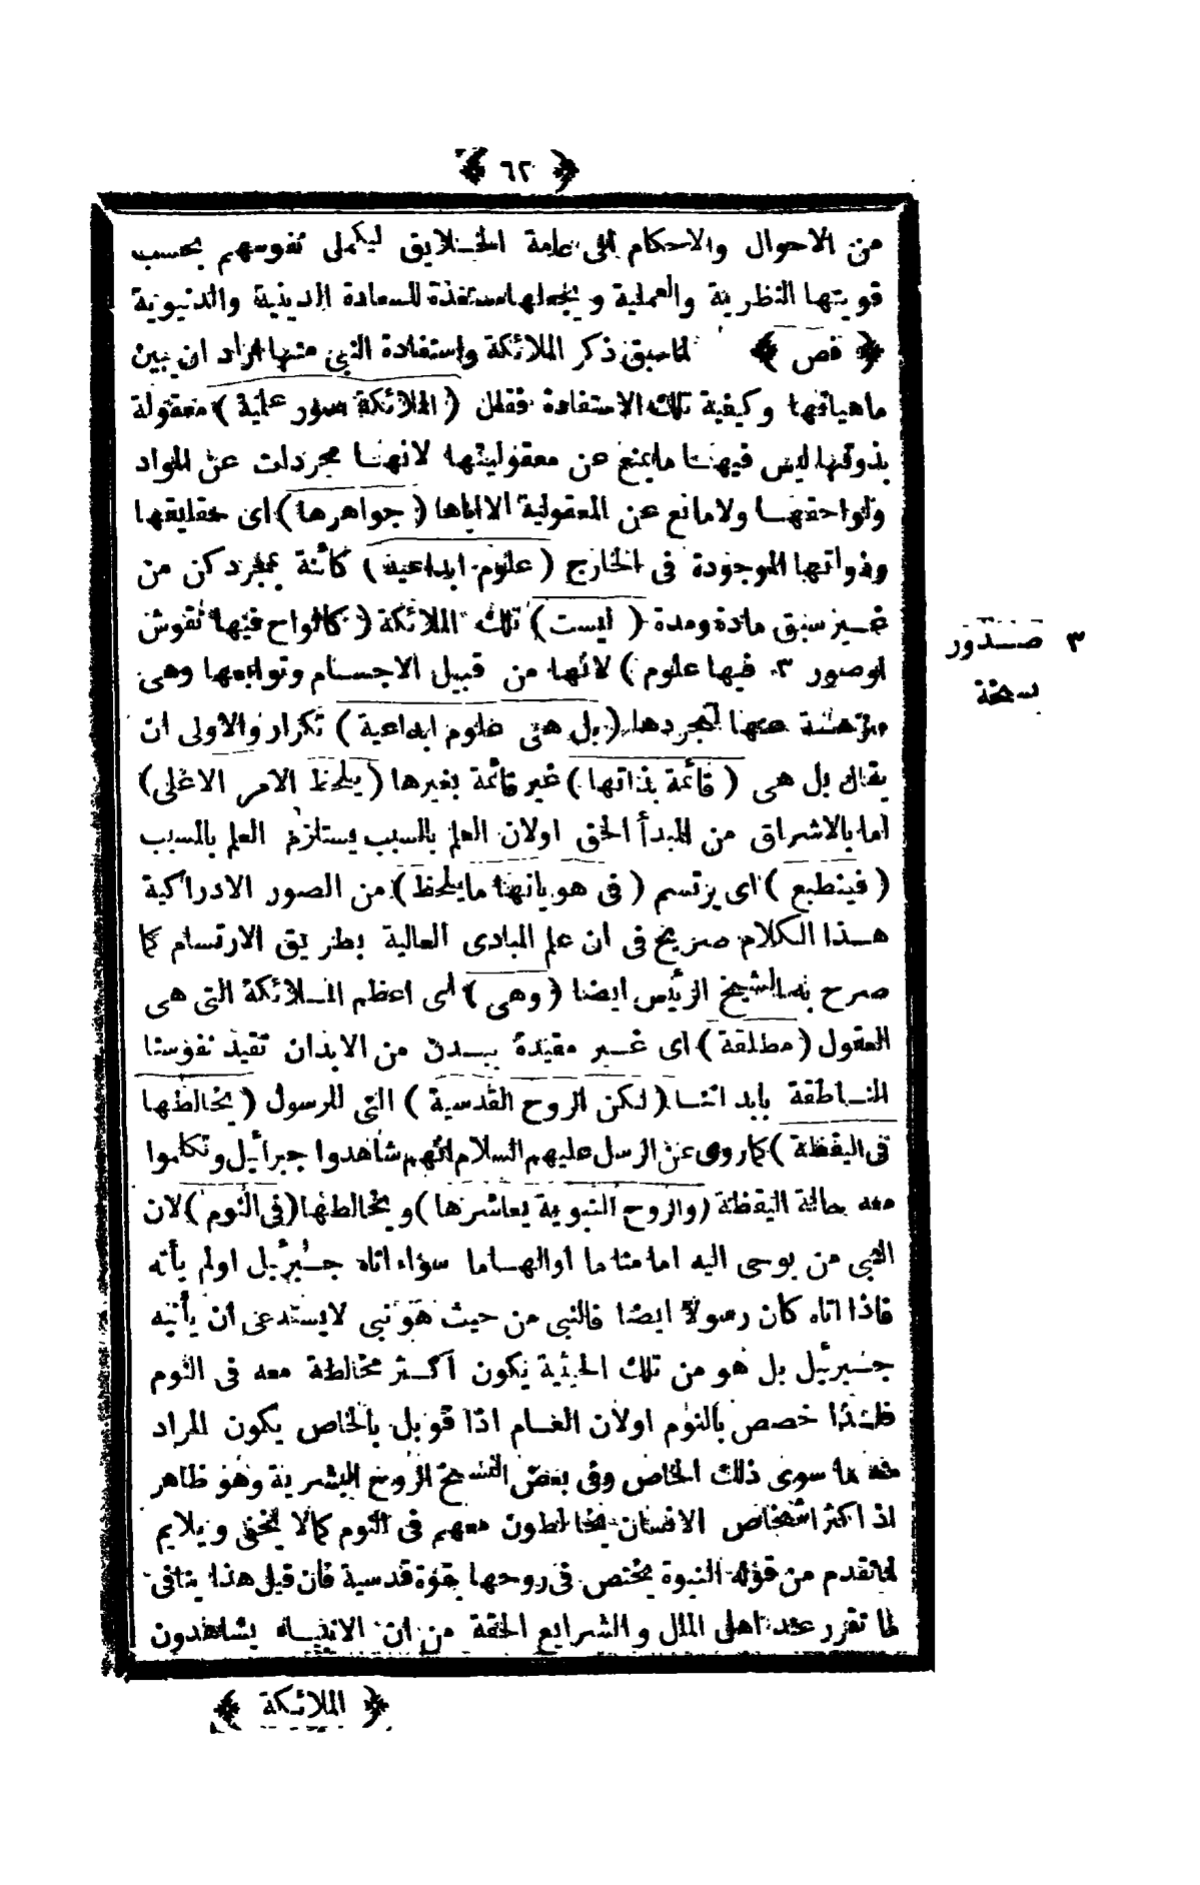 ﴿ ٦٢ ﴾
من الاحوال والاحكام الى عامة الخلايق ليكمل نفوسهم بحسب
قويتها النظرية والعملية ويجعلها مستعدة للسعادة الدينية والدنيوية
﴿ فص ﴾ لما سبق ذكر الملائكة واستفادة النبى منها اراد ان يبين
ماهياتها وكيفية تلك الاستفادة فقال (الملائكة صور علمية) معقولة
بذوتها ليس فيها ما يمنع عن معقوليتها لانها مجردات عن المواد
ولواحقها ولامانع عن المعقولية الااياها (جواهرها) اى حقايقها
وذواتها الموجودة فى الخارج (علوم ابداعية) كائنة بمجرد كن من
غير سبق مادة ومدة (ليست) تلك الملائكة (كالواح فيها نقوش
اوصور ٣ فيها علوم) لانها من قبيل الاجسام وتوابعها وهى
منزهة عنها لتجردها (بل هى علوم ابداعية) تكرار والاولى ان
يقال بل هى (قائمة بذاتها) غير قائمة بغيرها (يلحظ الامر الاعلى)
اما بالاشراق من المبدأ الحق اولان العلم بالسبب يستلزم العلم بالمسبب
(فينطبع) اى يرتسم (فى هوياتها ما يلحظ) من الصور الادراكية
هذا الكلام صريح فى ان علم المبادى العالية بطريق الارتسام كما
صرح به الشيخ الرئيس ايضا (وهى) اى اعظم الملائكة التى هى
العقول (مطلقة) اى غير مقيدة ببدن من الابدان تقيد نفوسنا
الناطقة بابداننا (لكن الروح القدسية) التى للرسول (يخالطها
فى اليقظة) كما روى عن الرسل عليهم السلام انهم شاهدوا جبرائيل وتكلموا
معه حالة اليقظة (والروح النبوية يعاشرها) ويخالطها (فى النوم) لان
النبى من يوحى اليه اما مناما اوالهاما سواء اتاه جبرئيل اولم يأته
فاذا اتاه كان رسولا ايضا فالنبى من حيث هو نبى لايستدعى ان يأتيه
جبرئيل بل هو من تلك الحيثية يكون اكثر مخالطة معه فى النوم
فلهذا خصص بالنوم اولان العام اذا قوبل بالخاص يكون المراد
منه ما سوى ذلك الخاص وفى بعض النسخ الروح البشرية وهو ظاهر
اذ اكثر اشخاص الانسان يخالطون معهم فى النوم كما لا يخفى ويلايم
لما تقدم من قوله النبوة يختص فى روحها بقوة قدسية فان قيل هذا ينافى
لما تقرر عند اهل الملل والشرايع الحقة من ان الانبياء يشاهدون
﴿ الملائكة ﴾
٣ صدور
نسخة